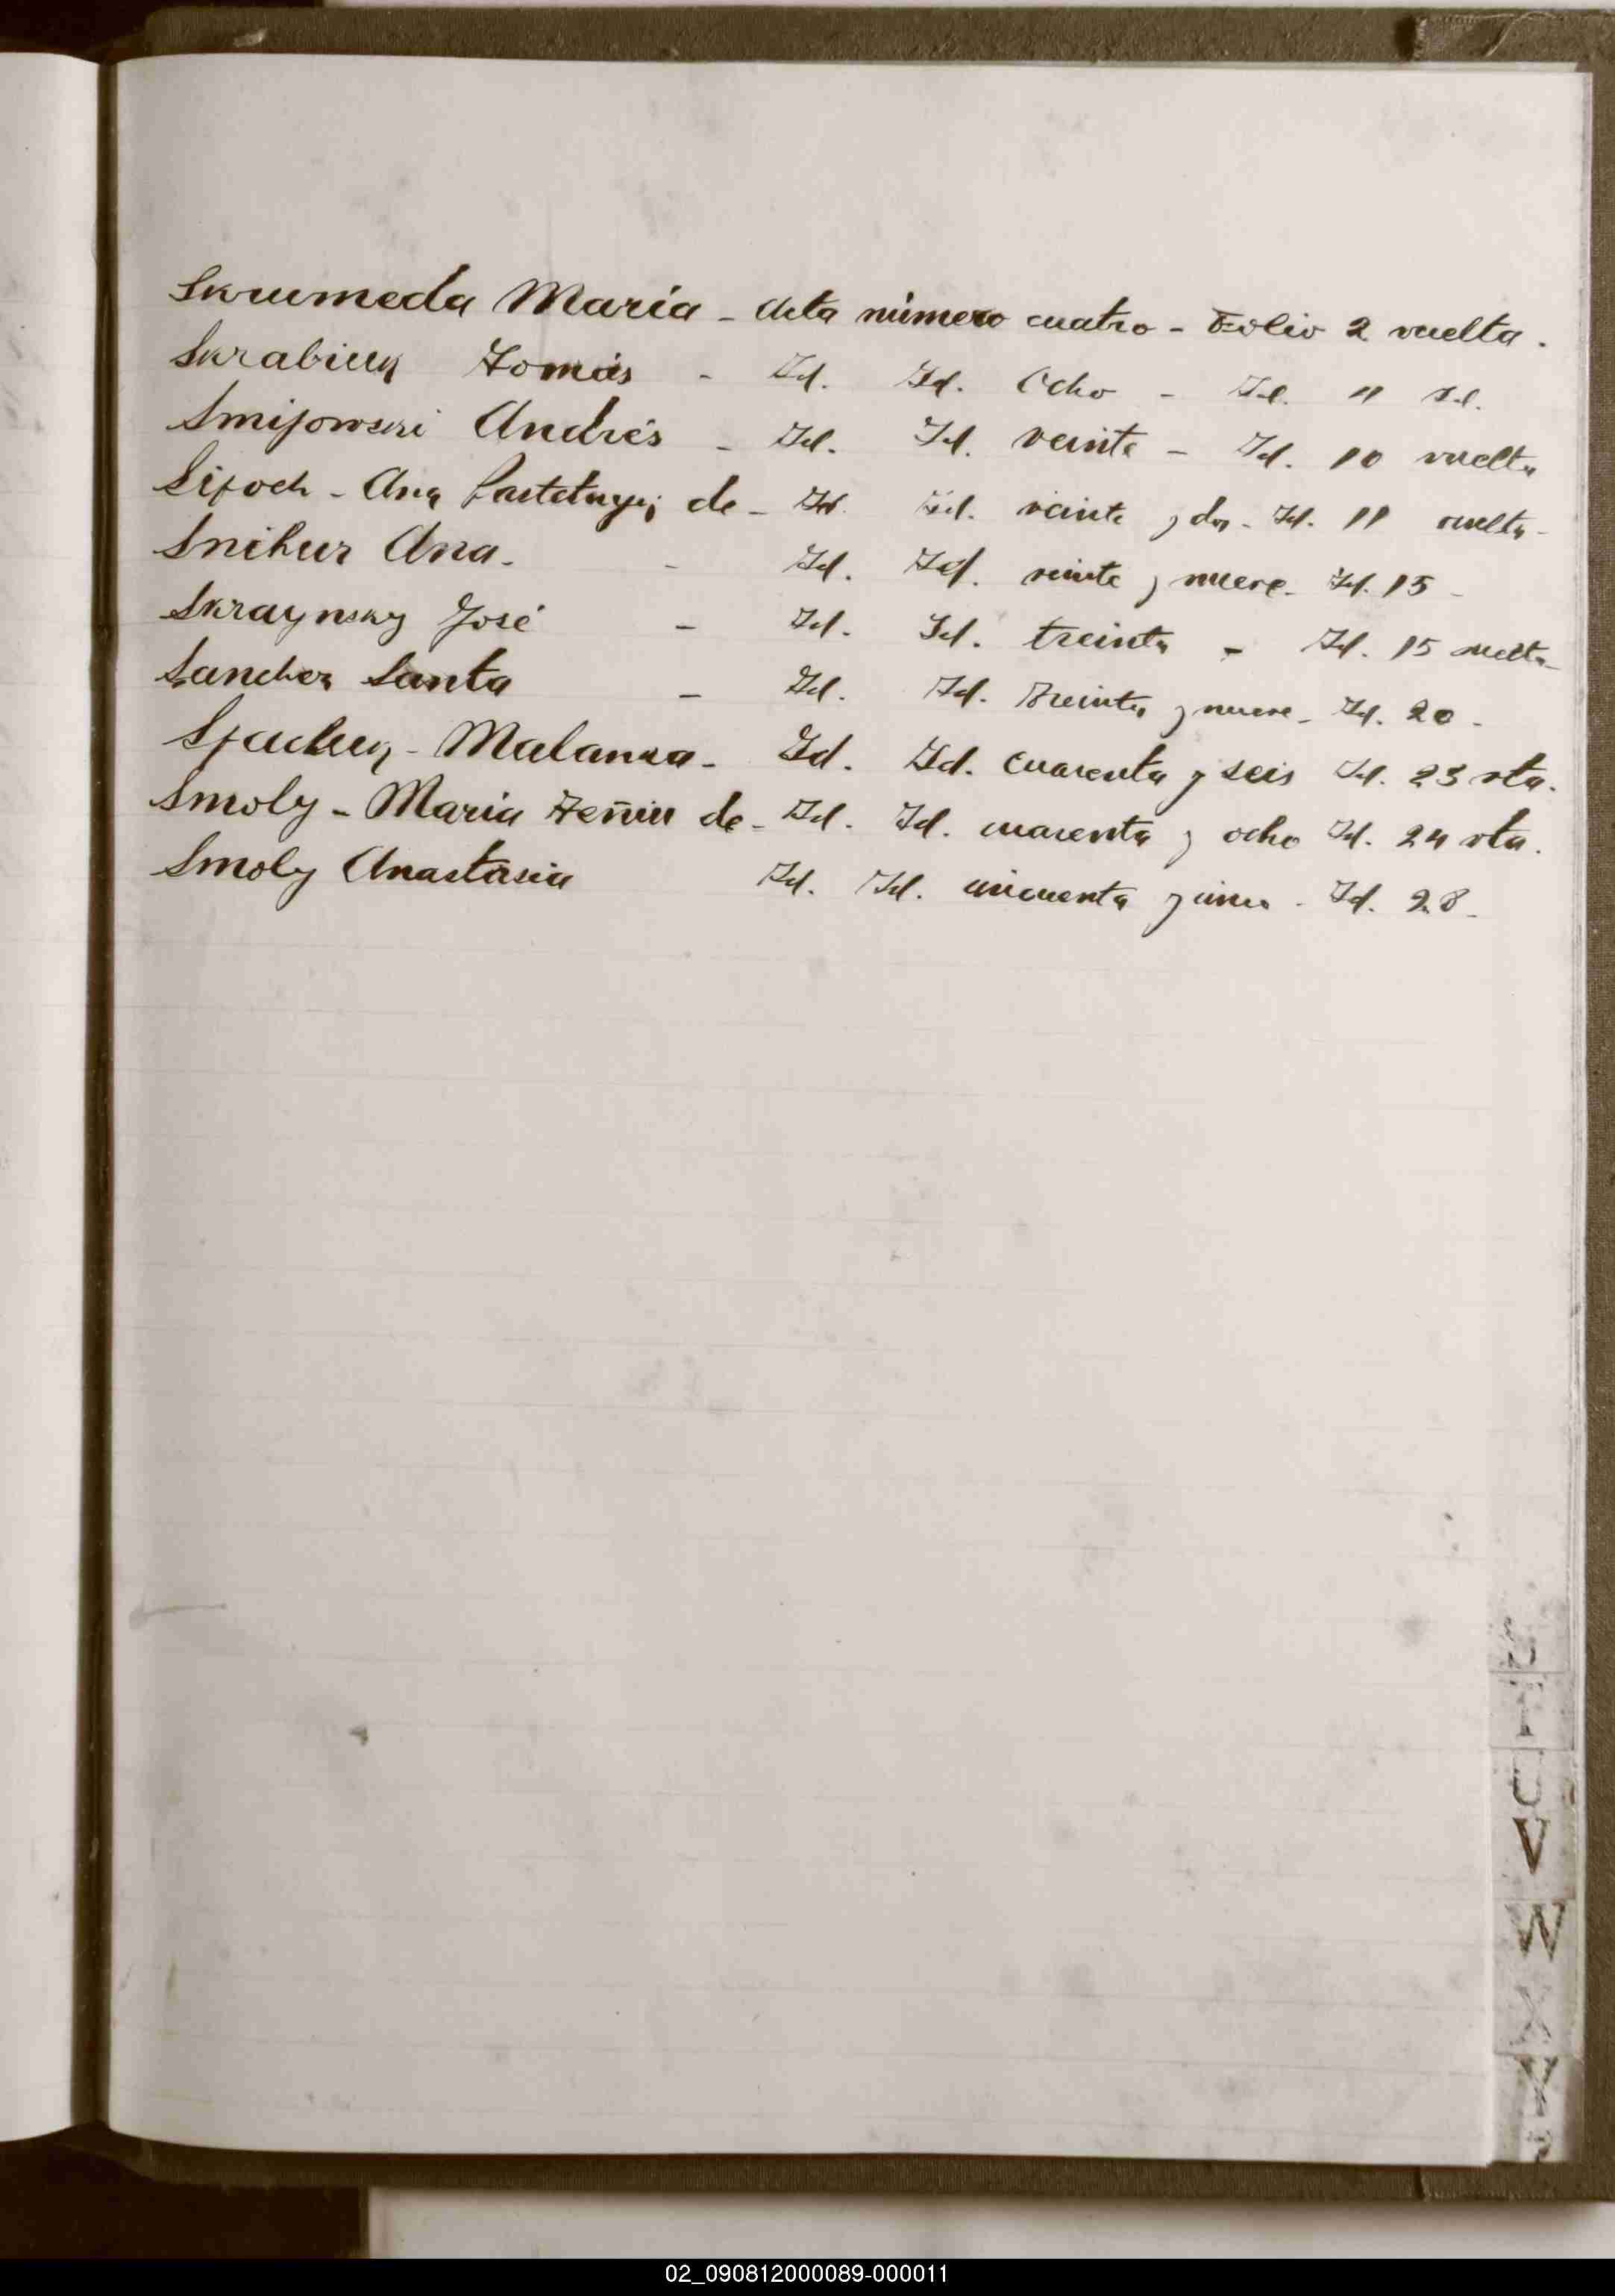 Skrumeda Maria - Acta número cuatro - Folio 2 vuelta.
Skrabiuk Tomás - Id. Id. Ocho - Id. 4 Id.
Smijowski Andrés - Id. Id. veinte - Id. 10 vuelta
Sijoch - Ana de - Id. Id. veinte y dos - Id. 11 vuelta -
Snihur Ana. - Id. Id. veinte y nueve - Id. 15 -
Skraynsky José - Id. Id. treinta - Id. 15 vuelta -
Sanchez Santa - Id. Id. Treinta y nueve - Id. 20 -
Malanka - Id. Id. cuarenta y seis Id. 23 vta.
Smoly - Maria de - Id. Id. cuarenta y ocho Id. 24 vta.
Smoly Anastasia Id. Id. cincuenta y cinco - Id. 28 -
S
T
U
V
W
X
Y
Z
02_090812000089-000011